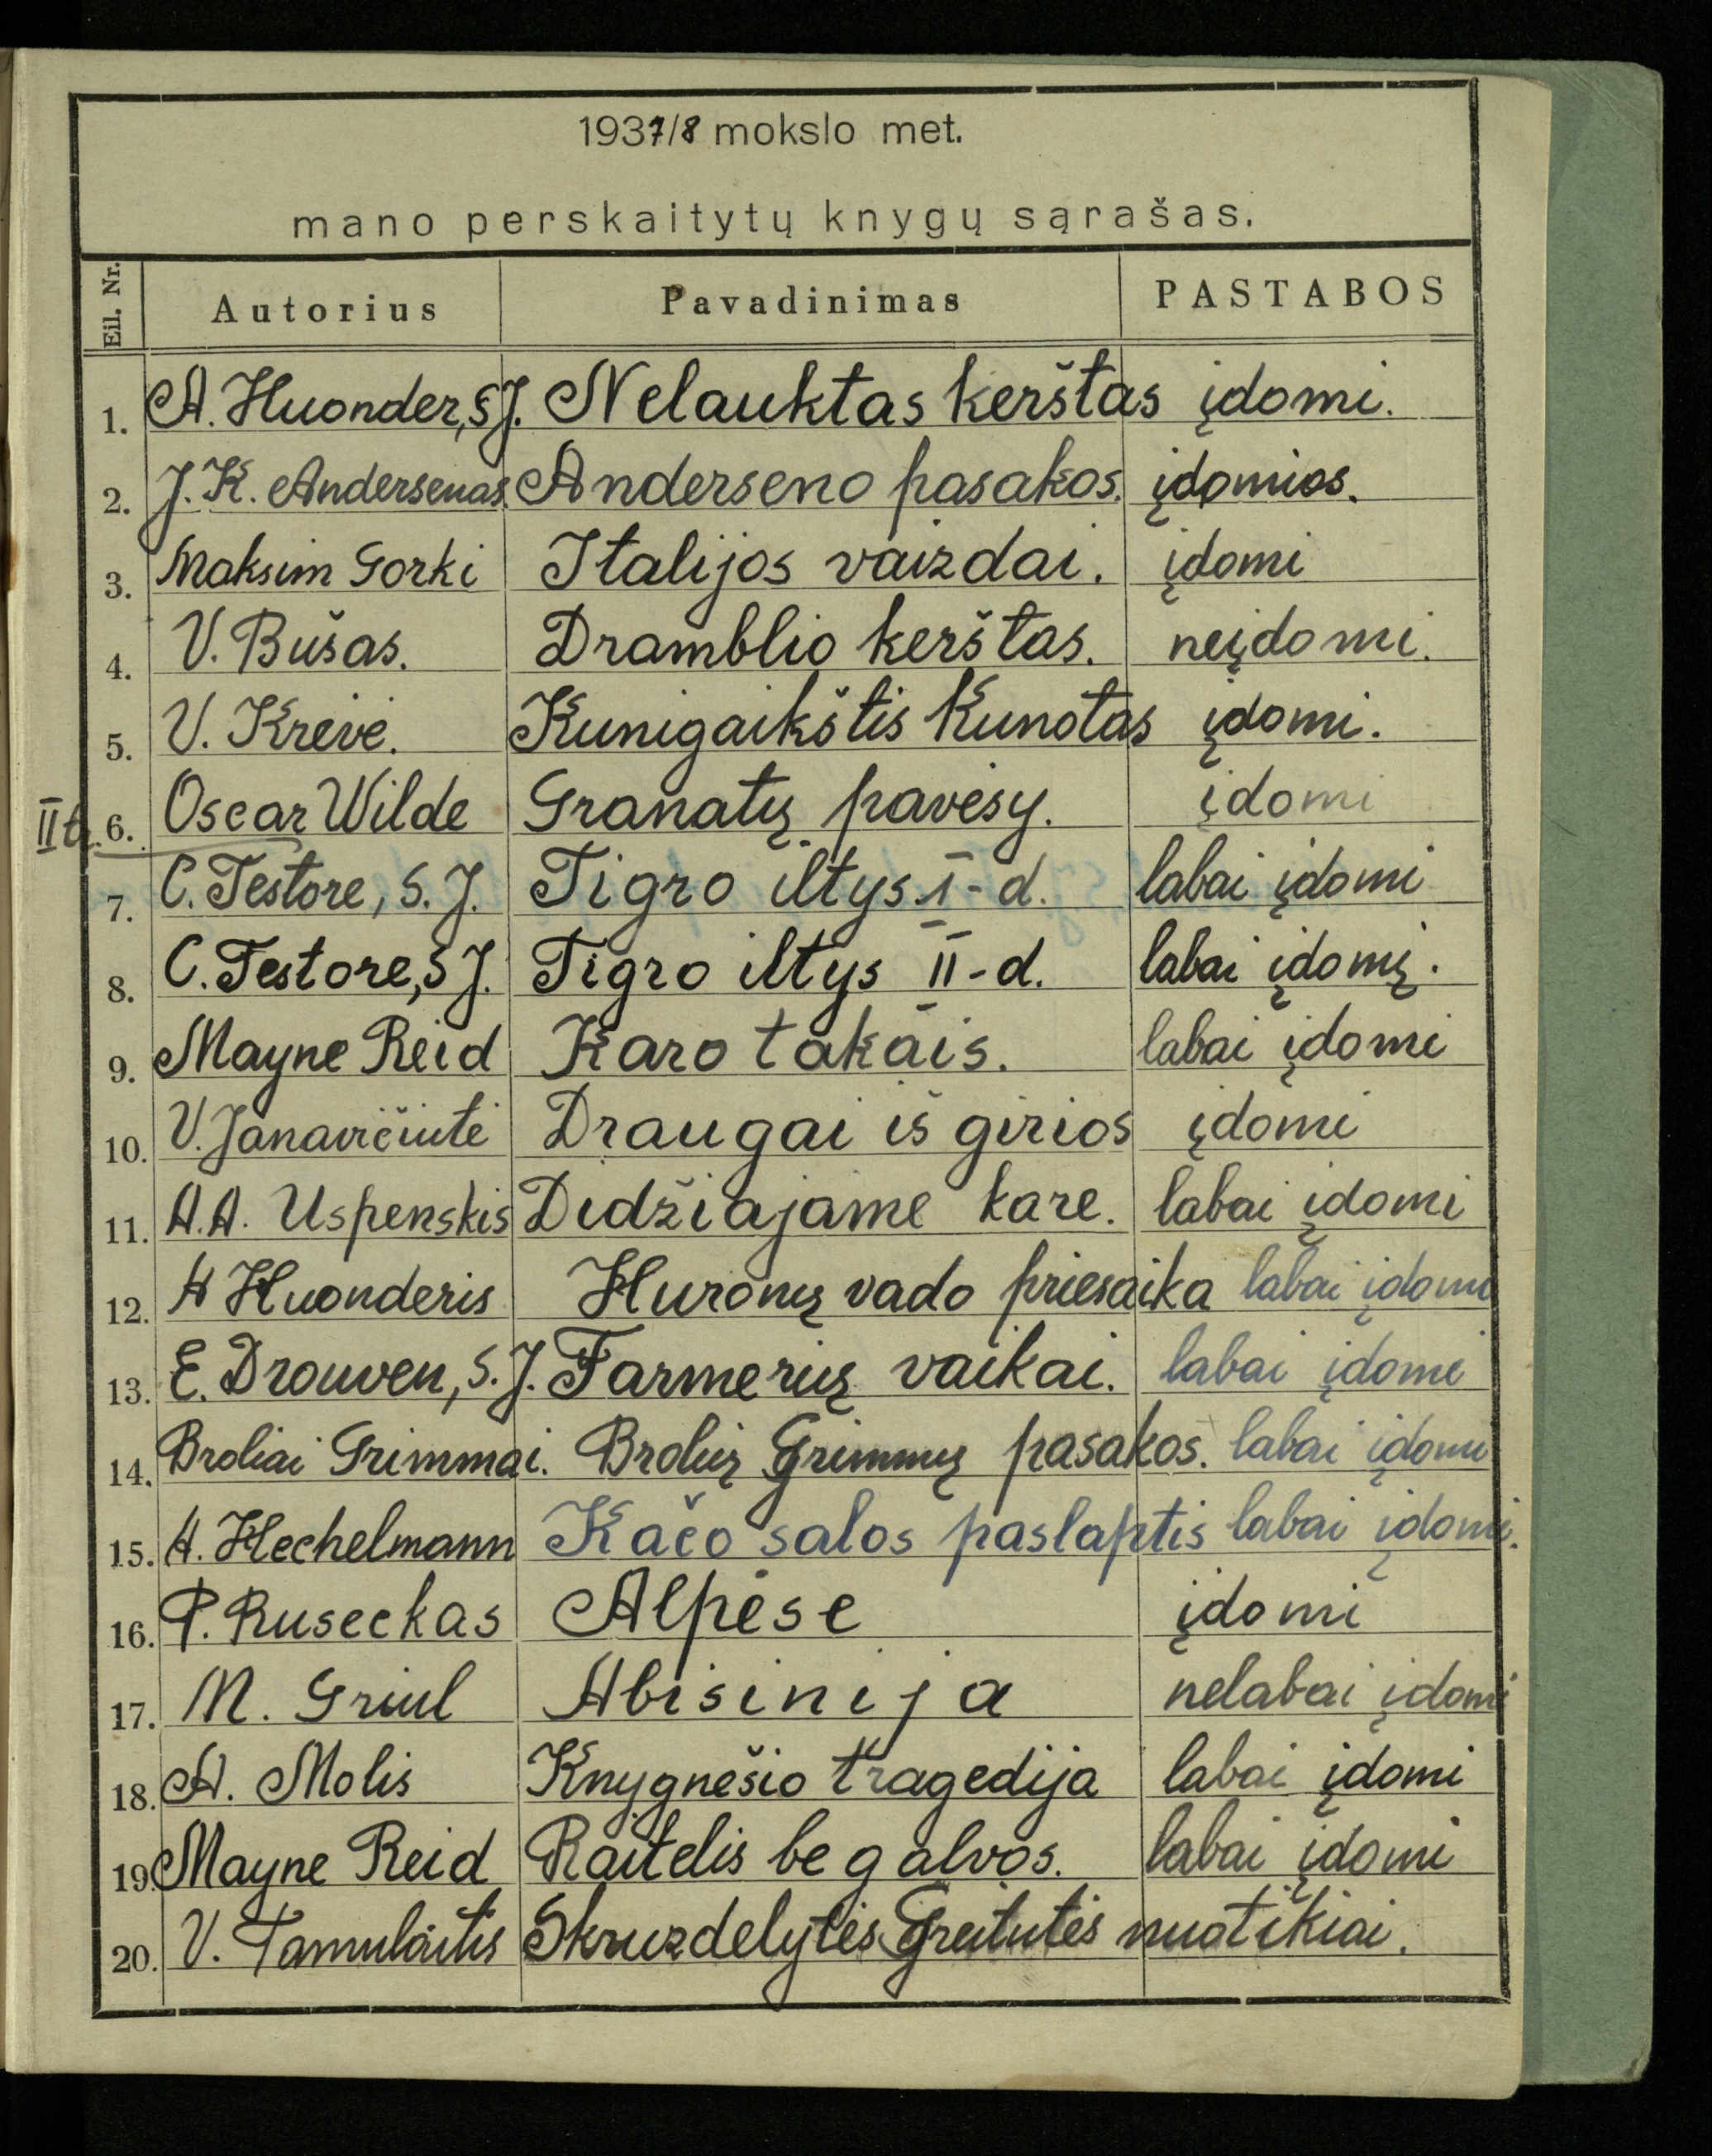 1937/8 mokslo met.
mano perskaitytų knygų sąrašas.
Eil. Nr. Autorius Pavadinimas PASTABOS
1. A. Huonder, SJ. Nelauktas kerštas įdomi.
2. J. K. Andersenas. Anderseno pasakos. įdomios.
3. Maksim Gorki Italijos vaizdai. įdomi
4. V. Bušas. Dramblio kerštas. neįdomi.
5. V. Krėvė. Kunigaikštis Kunotas įdomi.
IIt. 6. Oscar Wilde Granatų pavėsy. įdomi
7. C. Testore, S. J. Tigro iltys I-d. labai įdomi
8. C. Testore, S J. Tigro iltys II-d. labai įdomį.
9. Mayne Reid Karo takais. labai įdomi
10. V. Janavičiutė Draugai iš girios įdomi
11. A. A. Uspenskis Didžiajame kare. labai įdomi
12. A Huonderis Huronų vado priesaika labai įdomi
13. E. Drouven, S. J. Farmerių vaikai. labai įdomi
14. Broliai Grimmai. Brolių Grimmų pasakos. labai įdomu
15. A. Hechelmann Kačo salos paslaptis labai įdomi.
16. P. Ruseckas Alpėse įdomi
17. M. Griul Abisinija nelabai įdomi
18. A. Molis Knygnešio tragedija labai įdomi
19. Mayne Reid Raitelis be galvos. labai įdomi
20. V. Tamulaitis Skruzdelytės Greitutės nuotikiai.